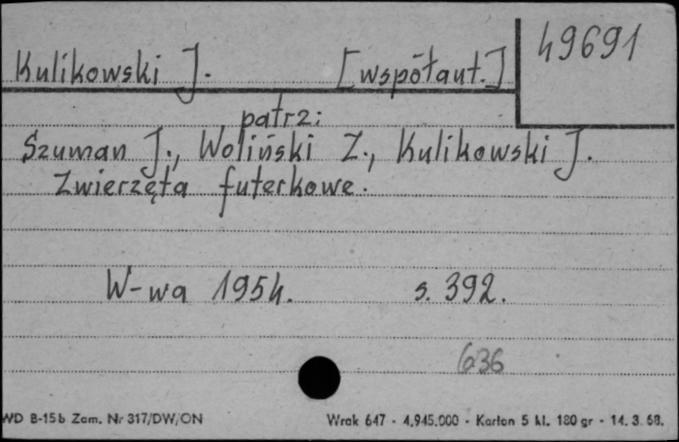 49691
Kulikowski J. [współaut.]
patrz:
Szuman J., Woliński Z., Kulikowski J.
Zwierzęta futerkowe.
W-wa 1954. s. 392.
636
WD B-15b Zam. Nr 317/DW/ON Wrak 647 - 4.945.000 - Karton 5 kl. 180 gr - 14. 3. 68.